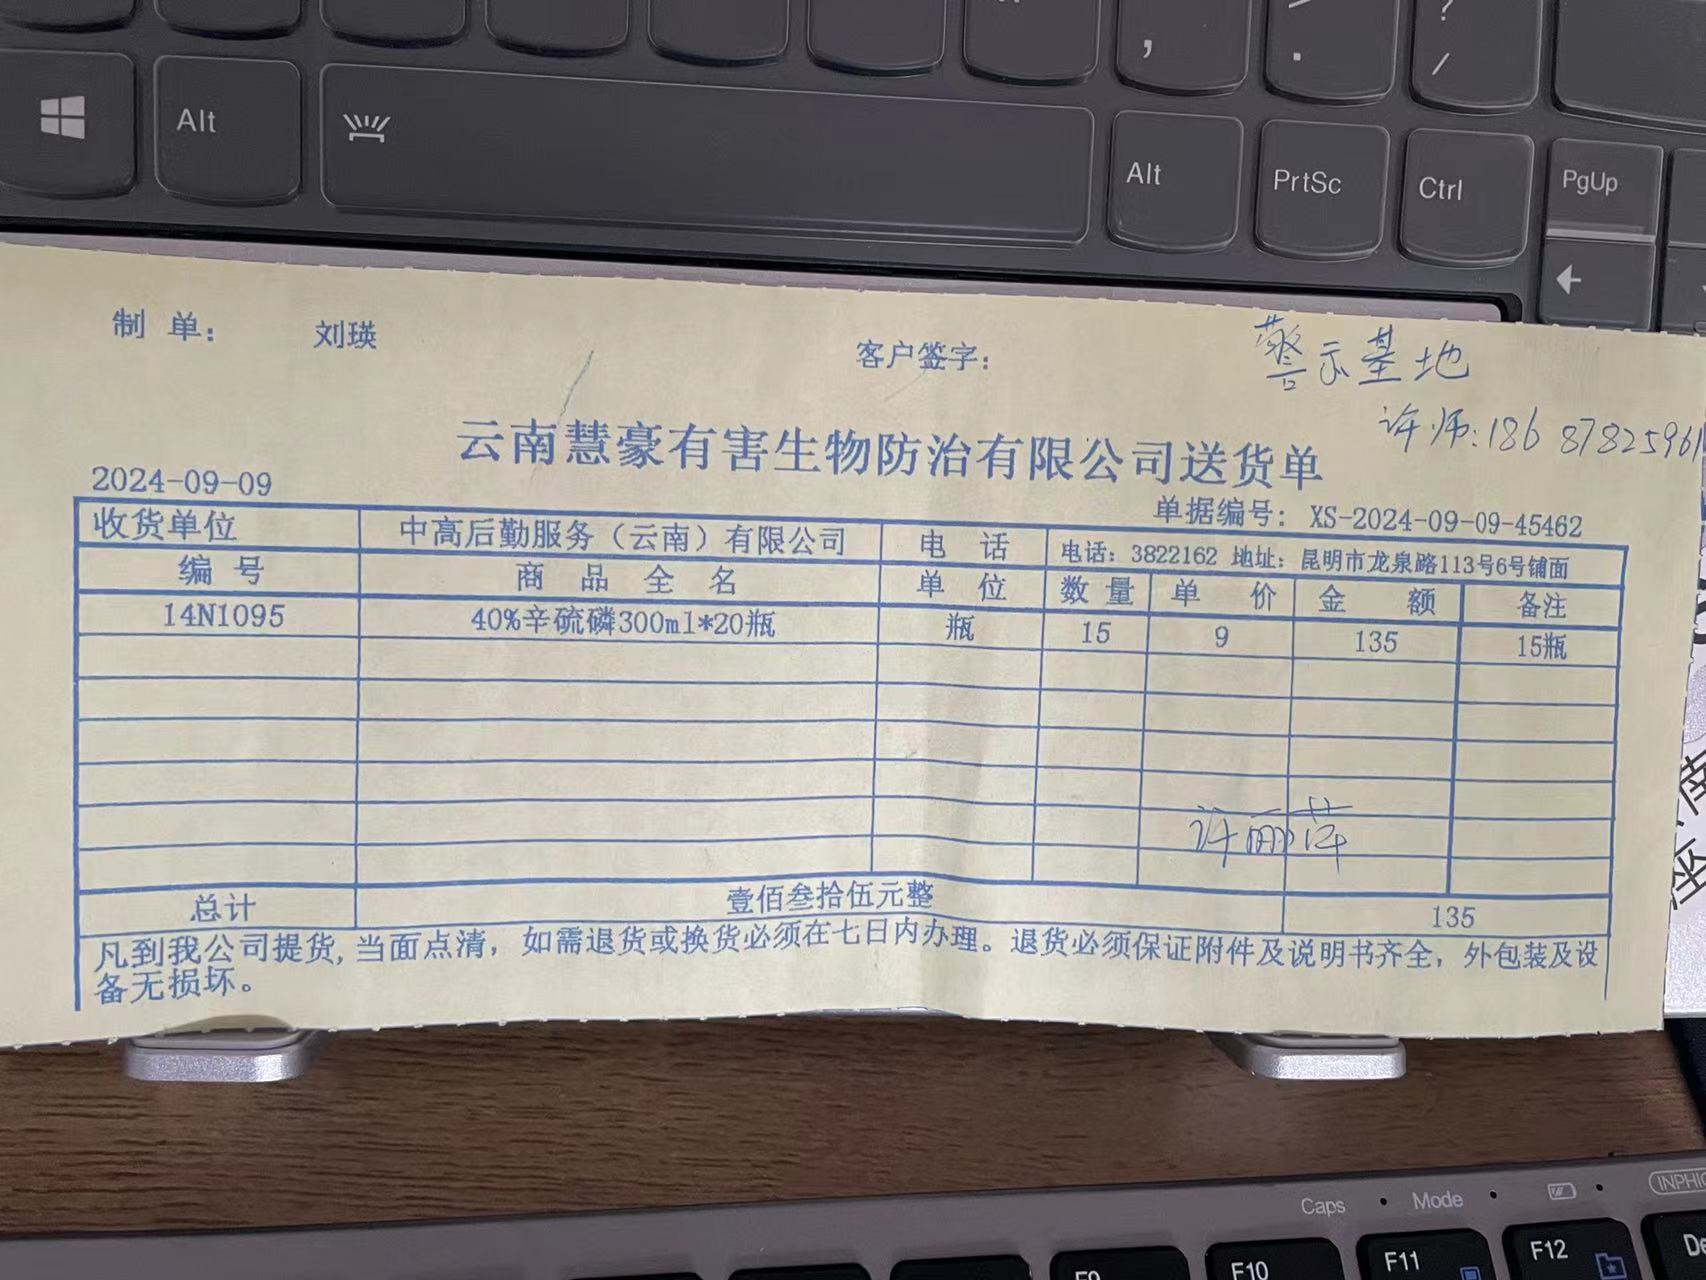 , > . ? /
Alt Alt PrtSc Ctrl PgUp
←
制 单： 刘瑛 客户签字： 警示基地
许师:186 8782596
云南慧豪有害生物防治有限公司送货单
2024-09-09 单据编号： XS-2024-09-09-45462
收货单位 中高后勤服务（云南）有限公司 电 话 电话：3822162 地址：昆明市龙泉路113号6号铺面
编 号 商 品 全 名 单 位 数 量 单 价 金 额 备注
14N1095 40%辛硫磷300ml*20瓶 瓶 15 9 135 15瓶
许丽萍
总计 壹佰叁拾伍元整 135
凡到我公司提货,当面点清，如需退货或换货必须在七日内办理。退货必须保证附件及说明书齐全，外包装及设
备无损坏。
Caps Mode INPHIC
F9 F10 F11 F12 De